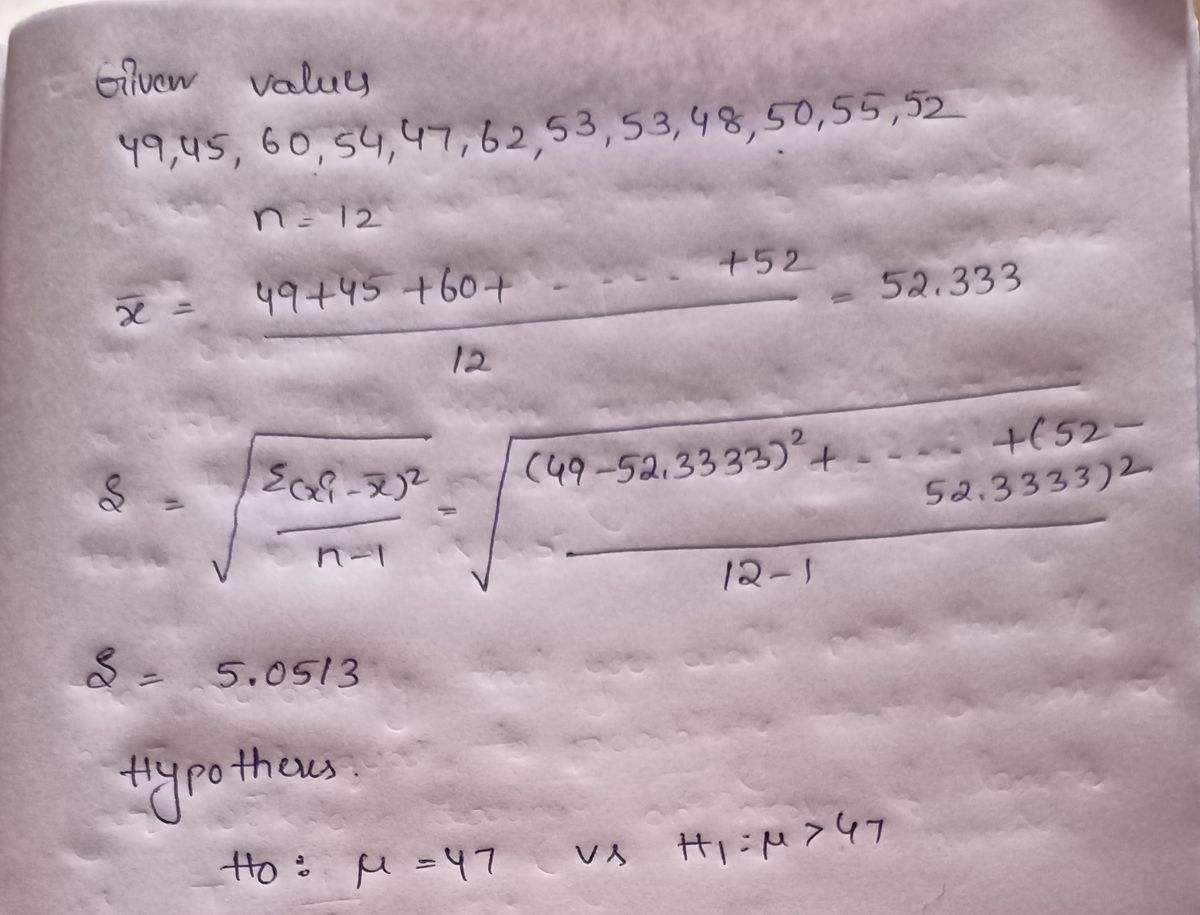 Given values
49,45, 60,54,47,62,53,53,48,50,55,52
n = 12
x̄ = 49+45+60+ - - - - +52 / 12 = 52.333
S = √(Σ(xi-x̄)² / n-1) = √((49-52.3333)²+ - - - - +(52-52.3333)² / 12-1)
S = 5.0513
Hypothesis.
H0 : μ = 47 vs H1 : μ > 47